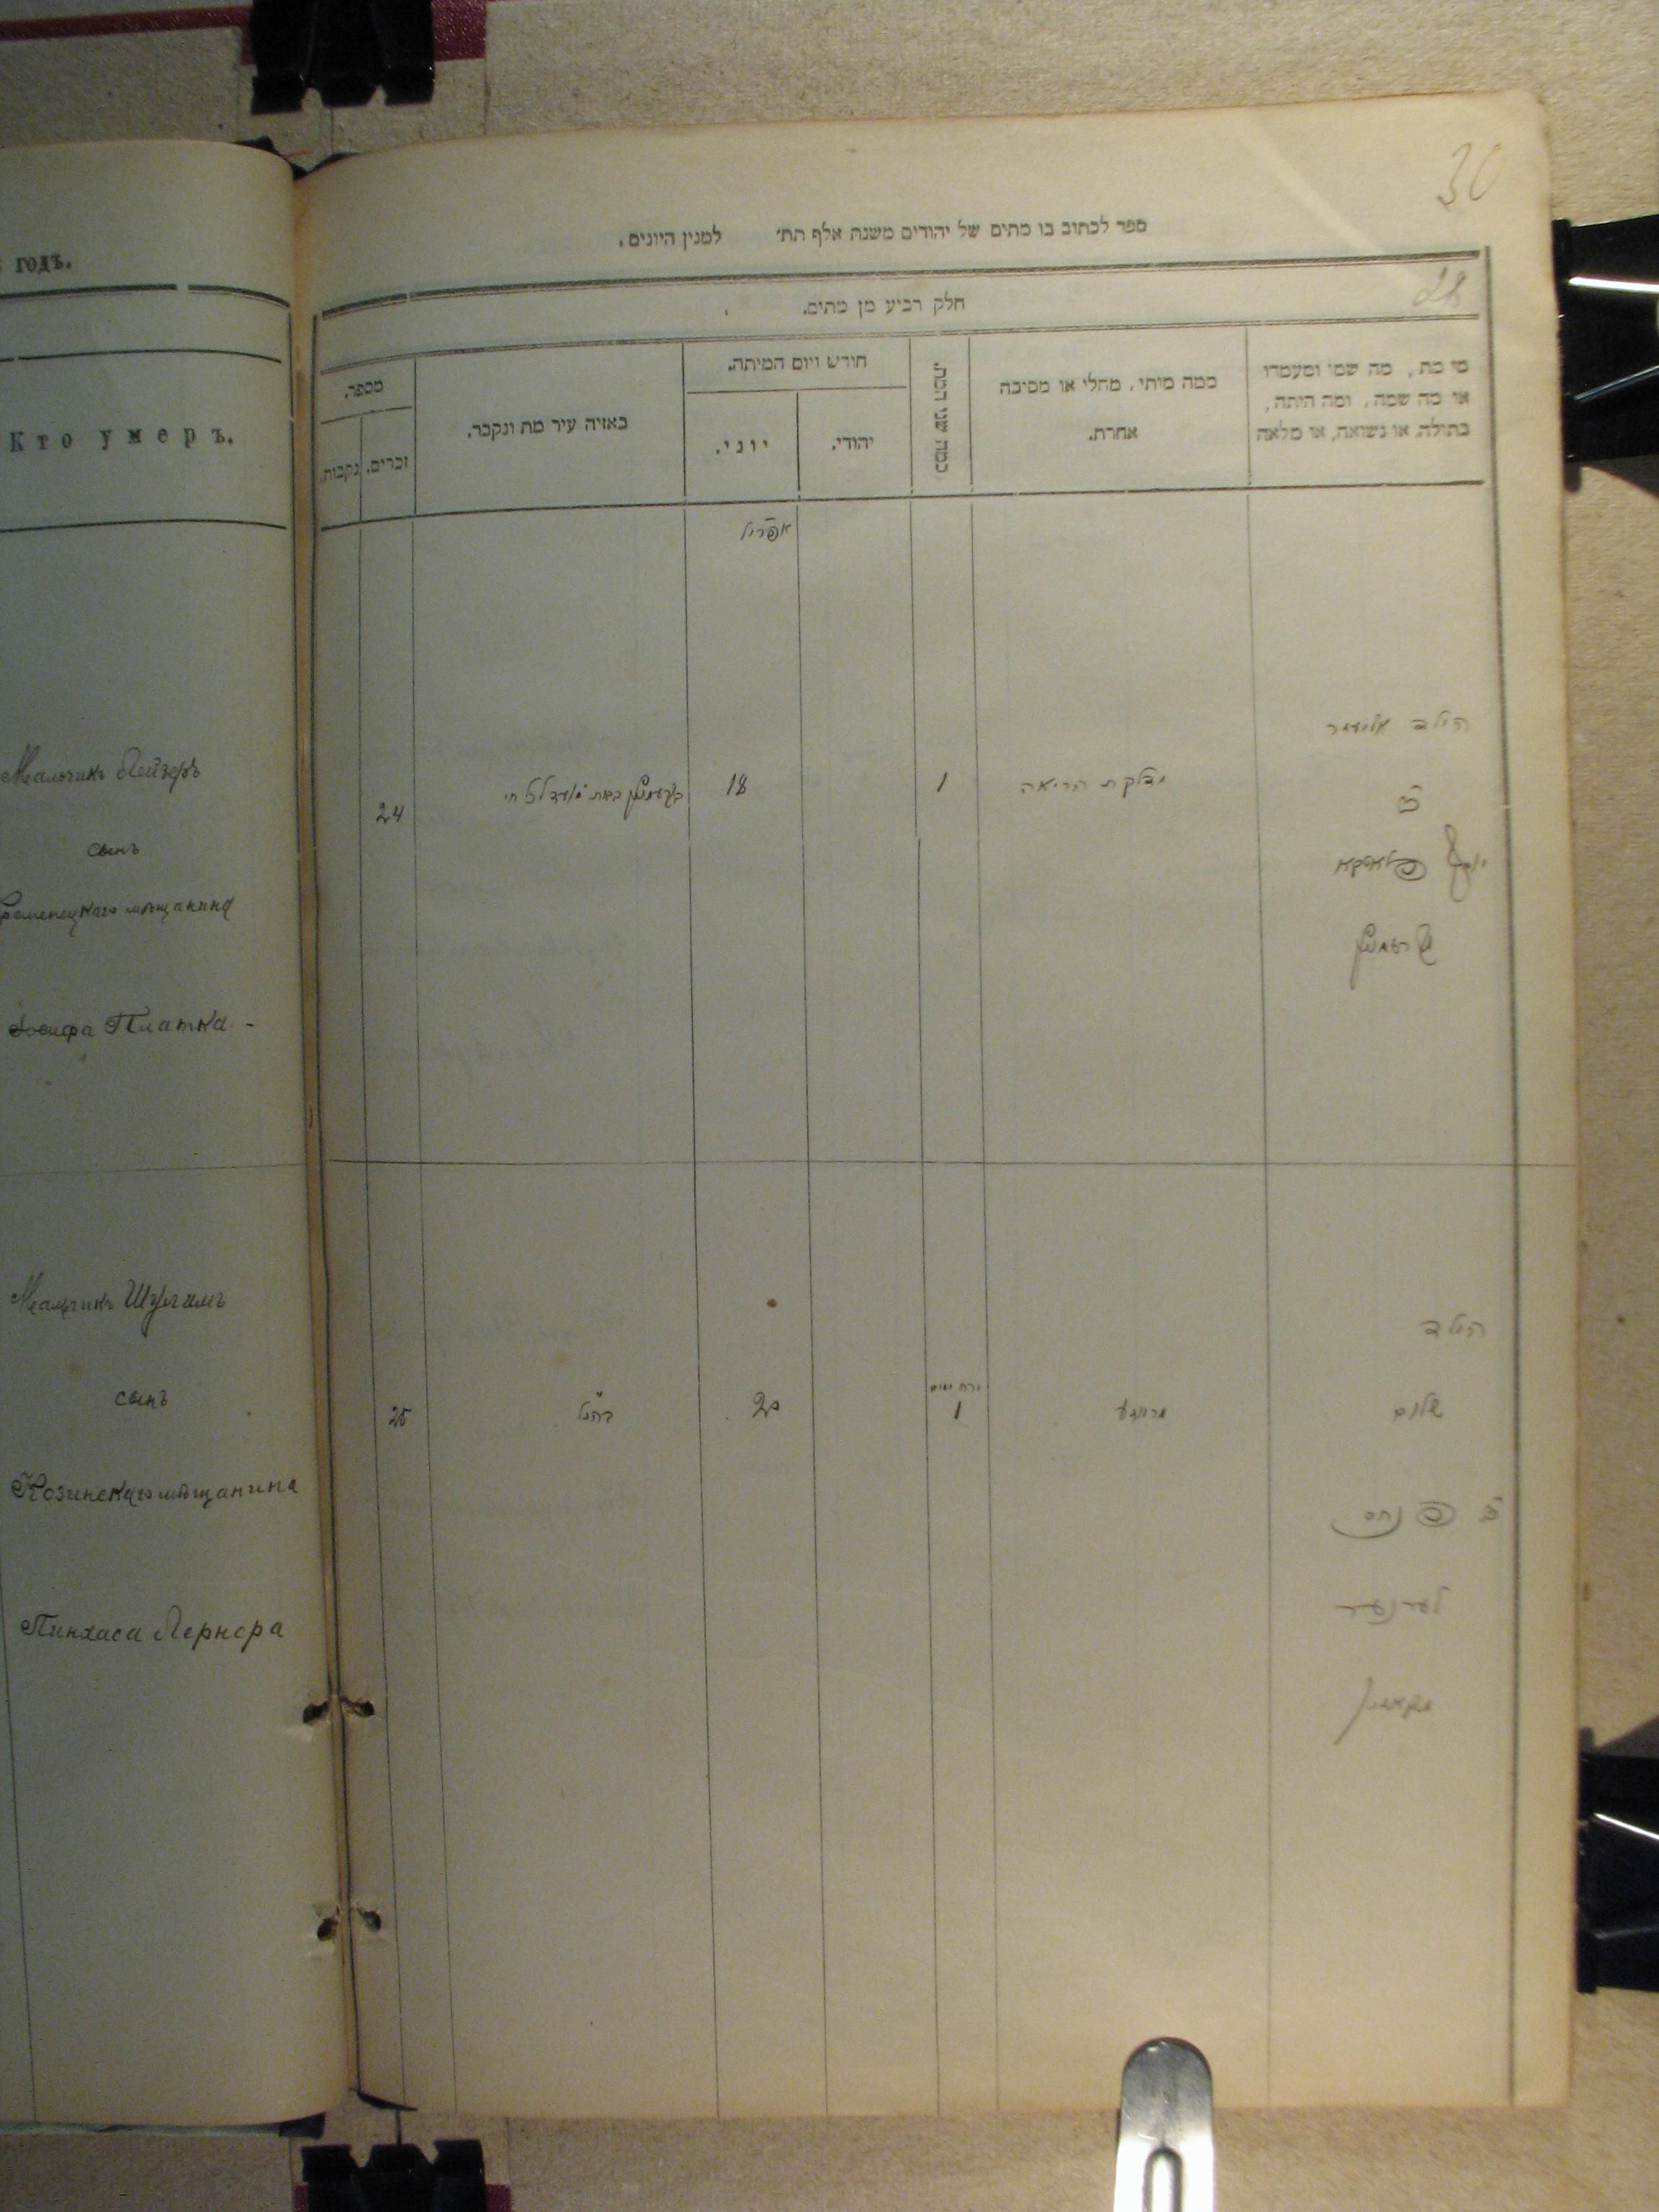 годъ.
Кто умеръ.
Мальчикъ Лейзеръ
сынъ
Кременецкаго мѣщанина
Іосифа Платка -
Мальчикъ Шулимъ
сынъ
Козинскаго мѣщанина
Пинхаса Лернера
30
ספר לכתוב בו מתים של יהודים משנת אלף תת׳ למנין היונים.
28
חלק רביע מן מתים.
מספר.
זכרים. נקבות.
באזיה עיר מת ונקבר.
חודש ויום המיתה.
יהודי. יוני.
כמה שני המת.
ממה מותי, מחלי או מסיבה
אחרת.
מי מת, מה שמו ומעמדו
או מה שמה, ומה היתה,
בתולה או נשואה, או מלאה
אפריל
הילד אליעזר
24
18
1
דלקת הריאה
יוסף פלאטקא
קרעמניץ
הילד
ירח ימים
25
20
1
שלום
פנחס
לערנער